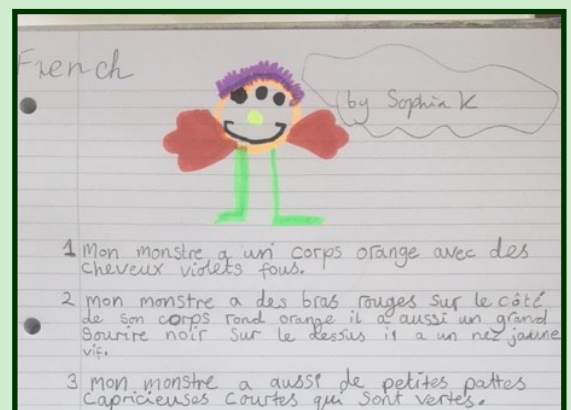 French
by Sophia K
1 Mon monstre a un corps orange avec des
cheveux violets fous.
2 mon monstre a des bras rouges sur le côté
de son corps rond orange il a aussi un grand
sourire noir sur le dessus il a un nez jaune
vif.
3 mon monstre a aussi de petites pattes
capricieuses courtes qui sont vertes.